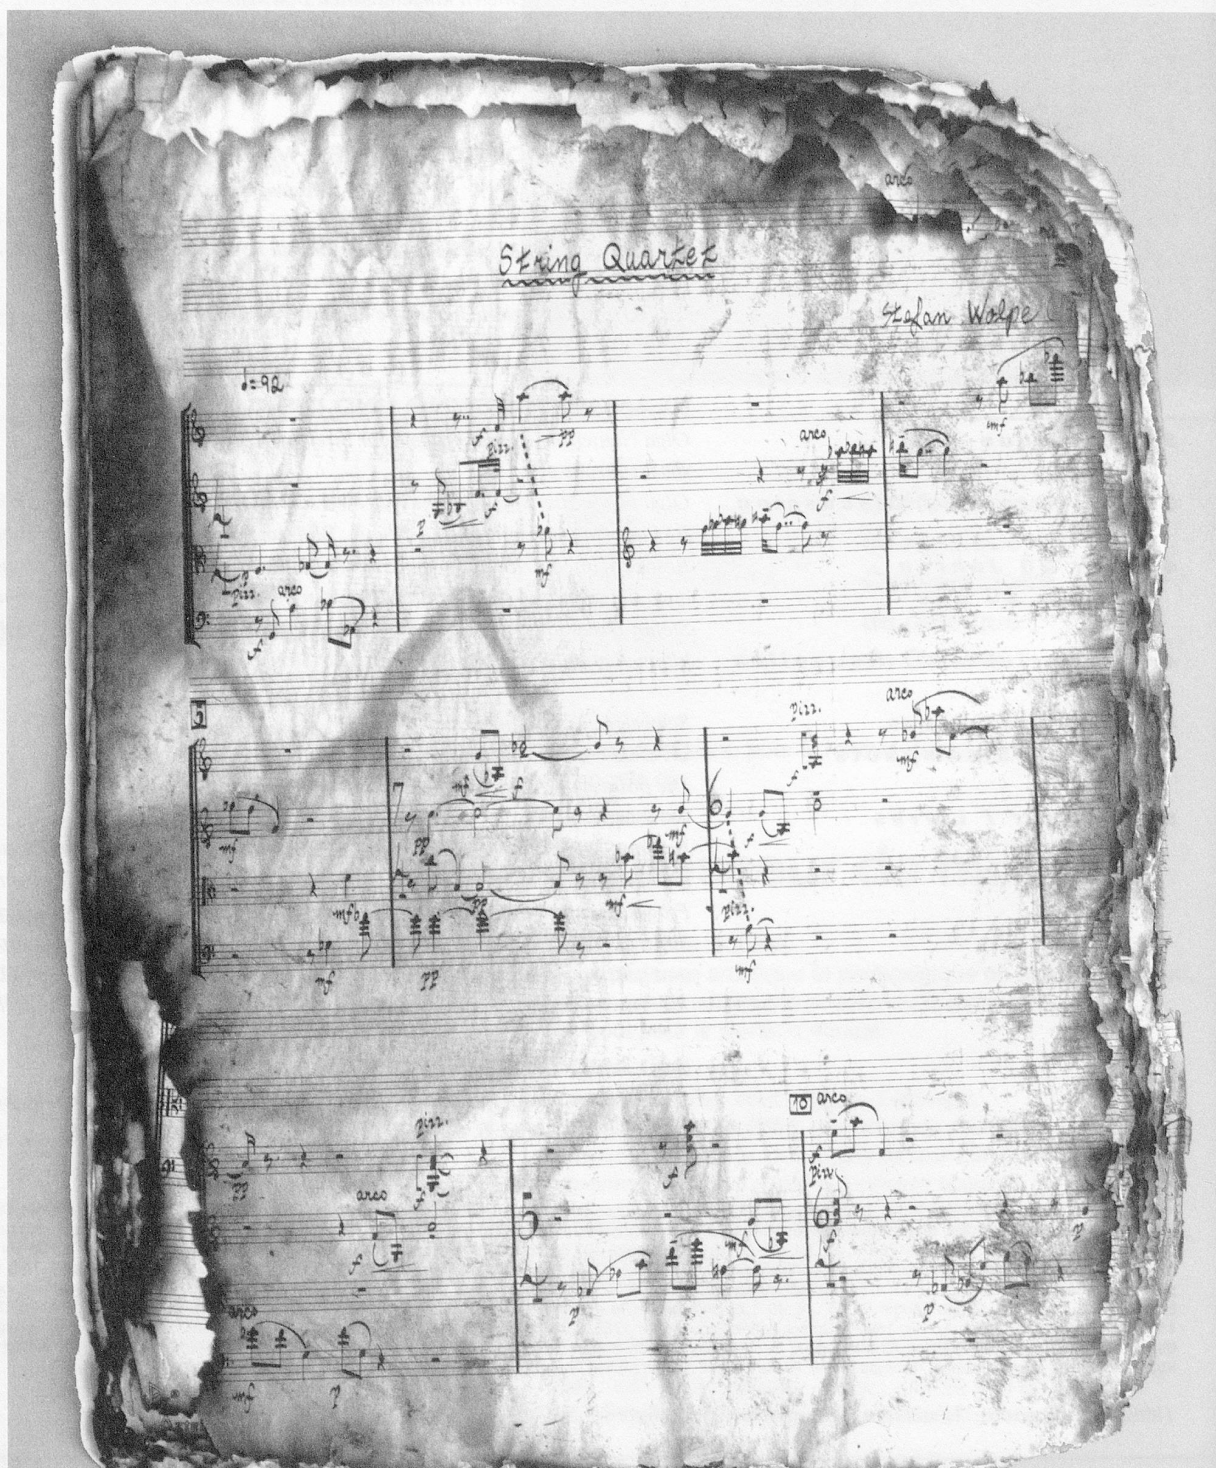 arco
String Quartet
Stefan Wolpe
♩=92
f pizz. pp arco mf
p f f
mf
pizz. arco
f
5
pizz. arco
mf f f mf
mf pp mf f
mf pp mf pizz.
mf pp mf
10 arco
pizz. f f
pp f pizz.
arco mf f
f
p p
arco
mf p